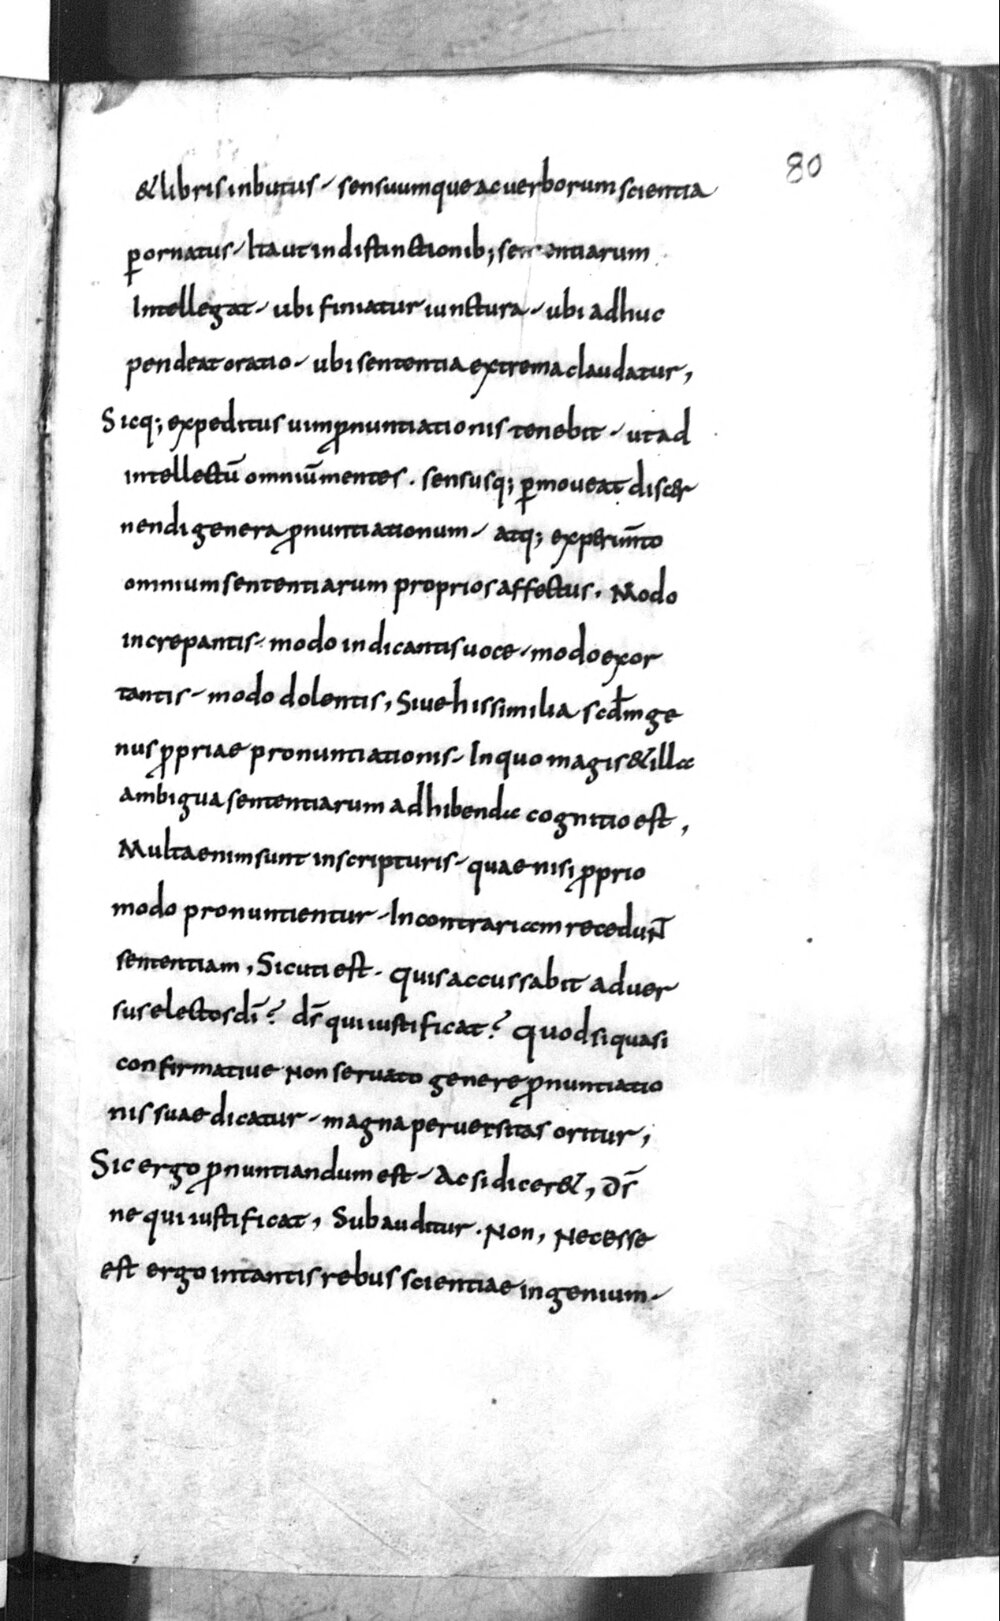 80
& libris inbutus, sensuumque ac uerborum scientia
p̲ornatus, Ita ut in distinctionib; sententiarum
Intellegat, ubi finiatur iunctura, ubi adhuc
pendeat oratio, ubi sententia extrema claudatur,
Sicq; expeditus uim ꝓnuntiationis tenebit, ut ad
intellectū omniūmentes. sensusq; ꝑmoueat discer
nendi genera ꝓnuntiationum, atq; experim̄to
omnium sententiarum proprios affectus. Modo
increpantis, modo indicantis uoce, modo exor
tantis, modo dolentis, Siue his similia scd̄m ge
nus ꝓpriae pronuntiationis, In quo magis & illa
ambigua sententiarum adhibenda cognitio est,
Multa enim sunt in scripturis, quae nisi ꝓprio
modo pronuntientur, In contrariam recedunt
sententiam, Sicuti est, quis accussabit aduer
sus electos dī? ds̄ qui iustificat? quod si quasi
confirmatiue non seruato genere ꝓnuntiatio
nis suae dicatur, magna peruersitas oritur,
Sic ergo ꝓnuntiandum est, Ac si dicer&, Ds̄
ne qui iustificat, Subauditur. Non, Necesse
est ergo in tantis rebus scientiae ingenium,